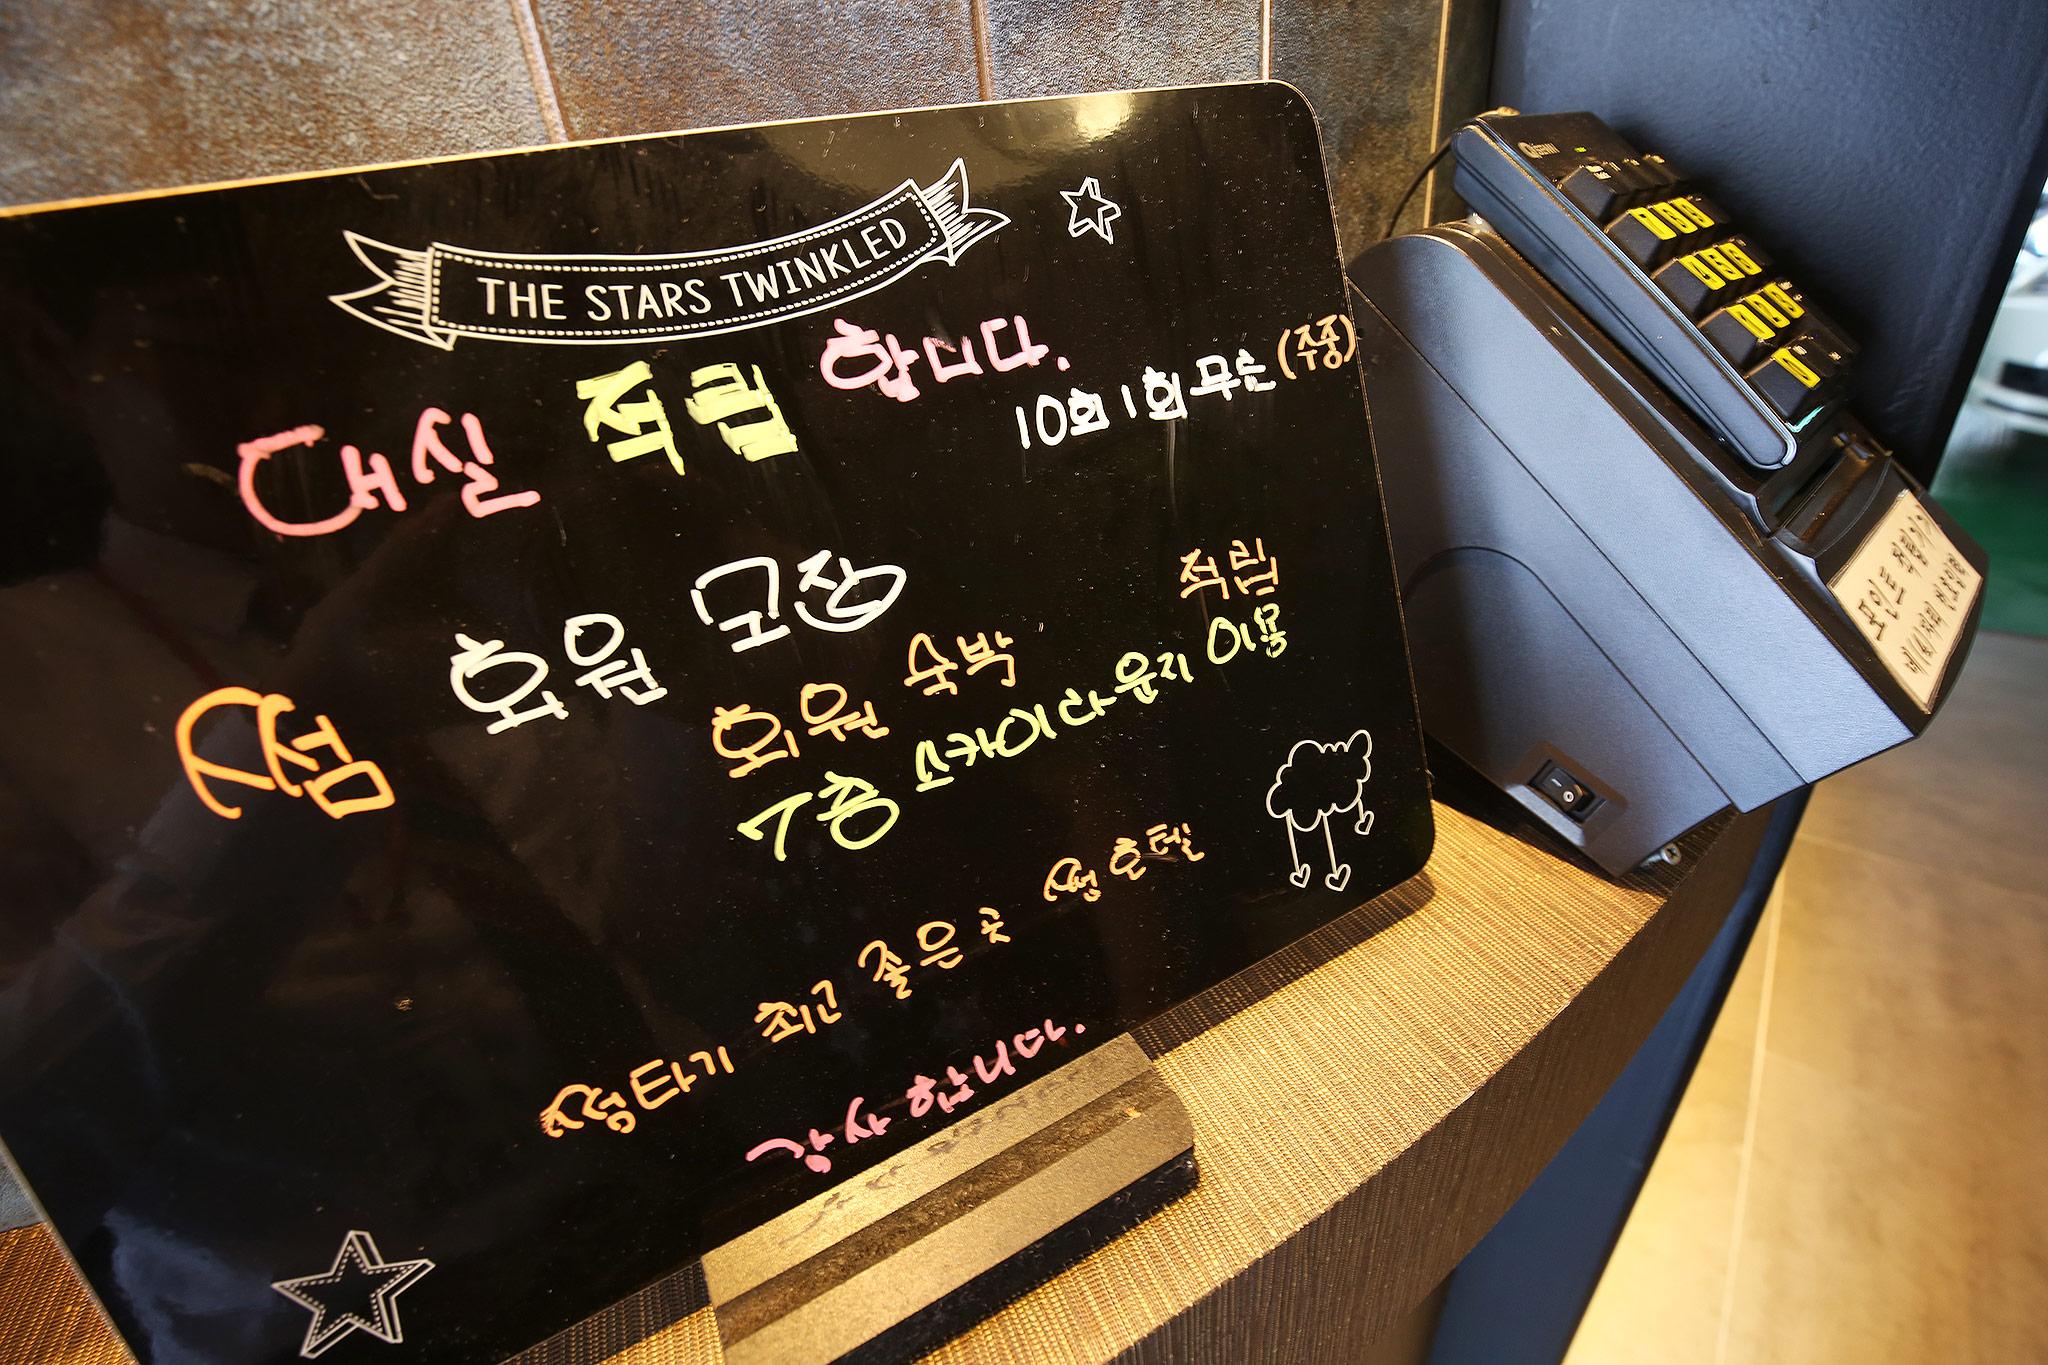 THE STARS TWINKLED
대실 적립 합니다.
10회 1회 무순 (주중)
쩜 회원 모장
회원 숙박 적립
7층 스카이라운지 이용
쎵타기 최고 좋은 곳 쎔 호텔
감사합니다.
포인트